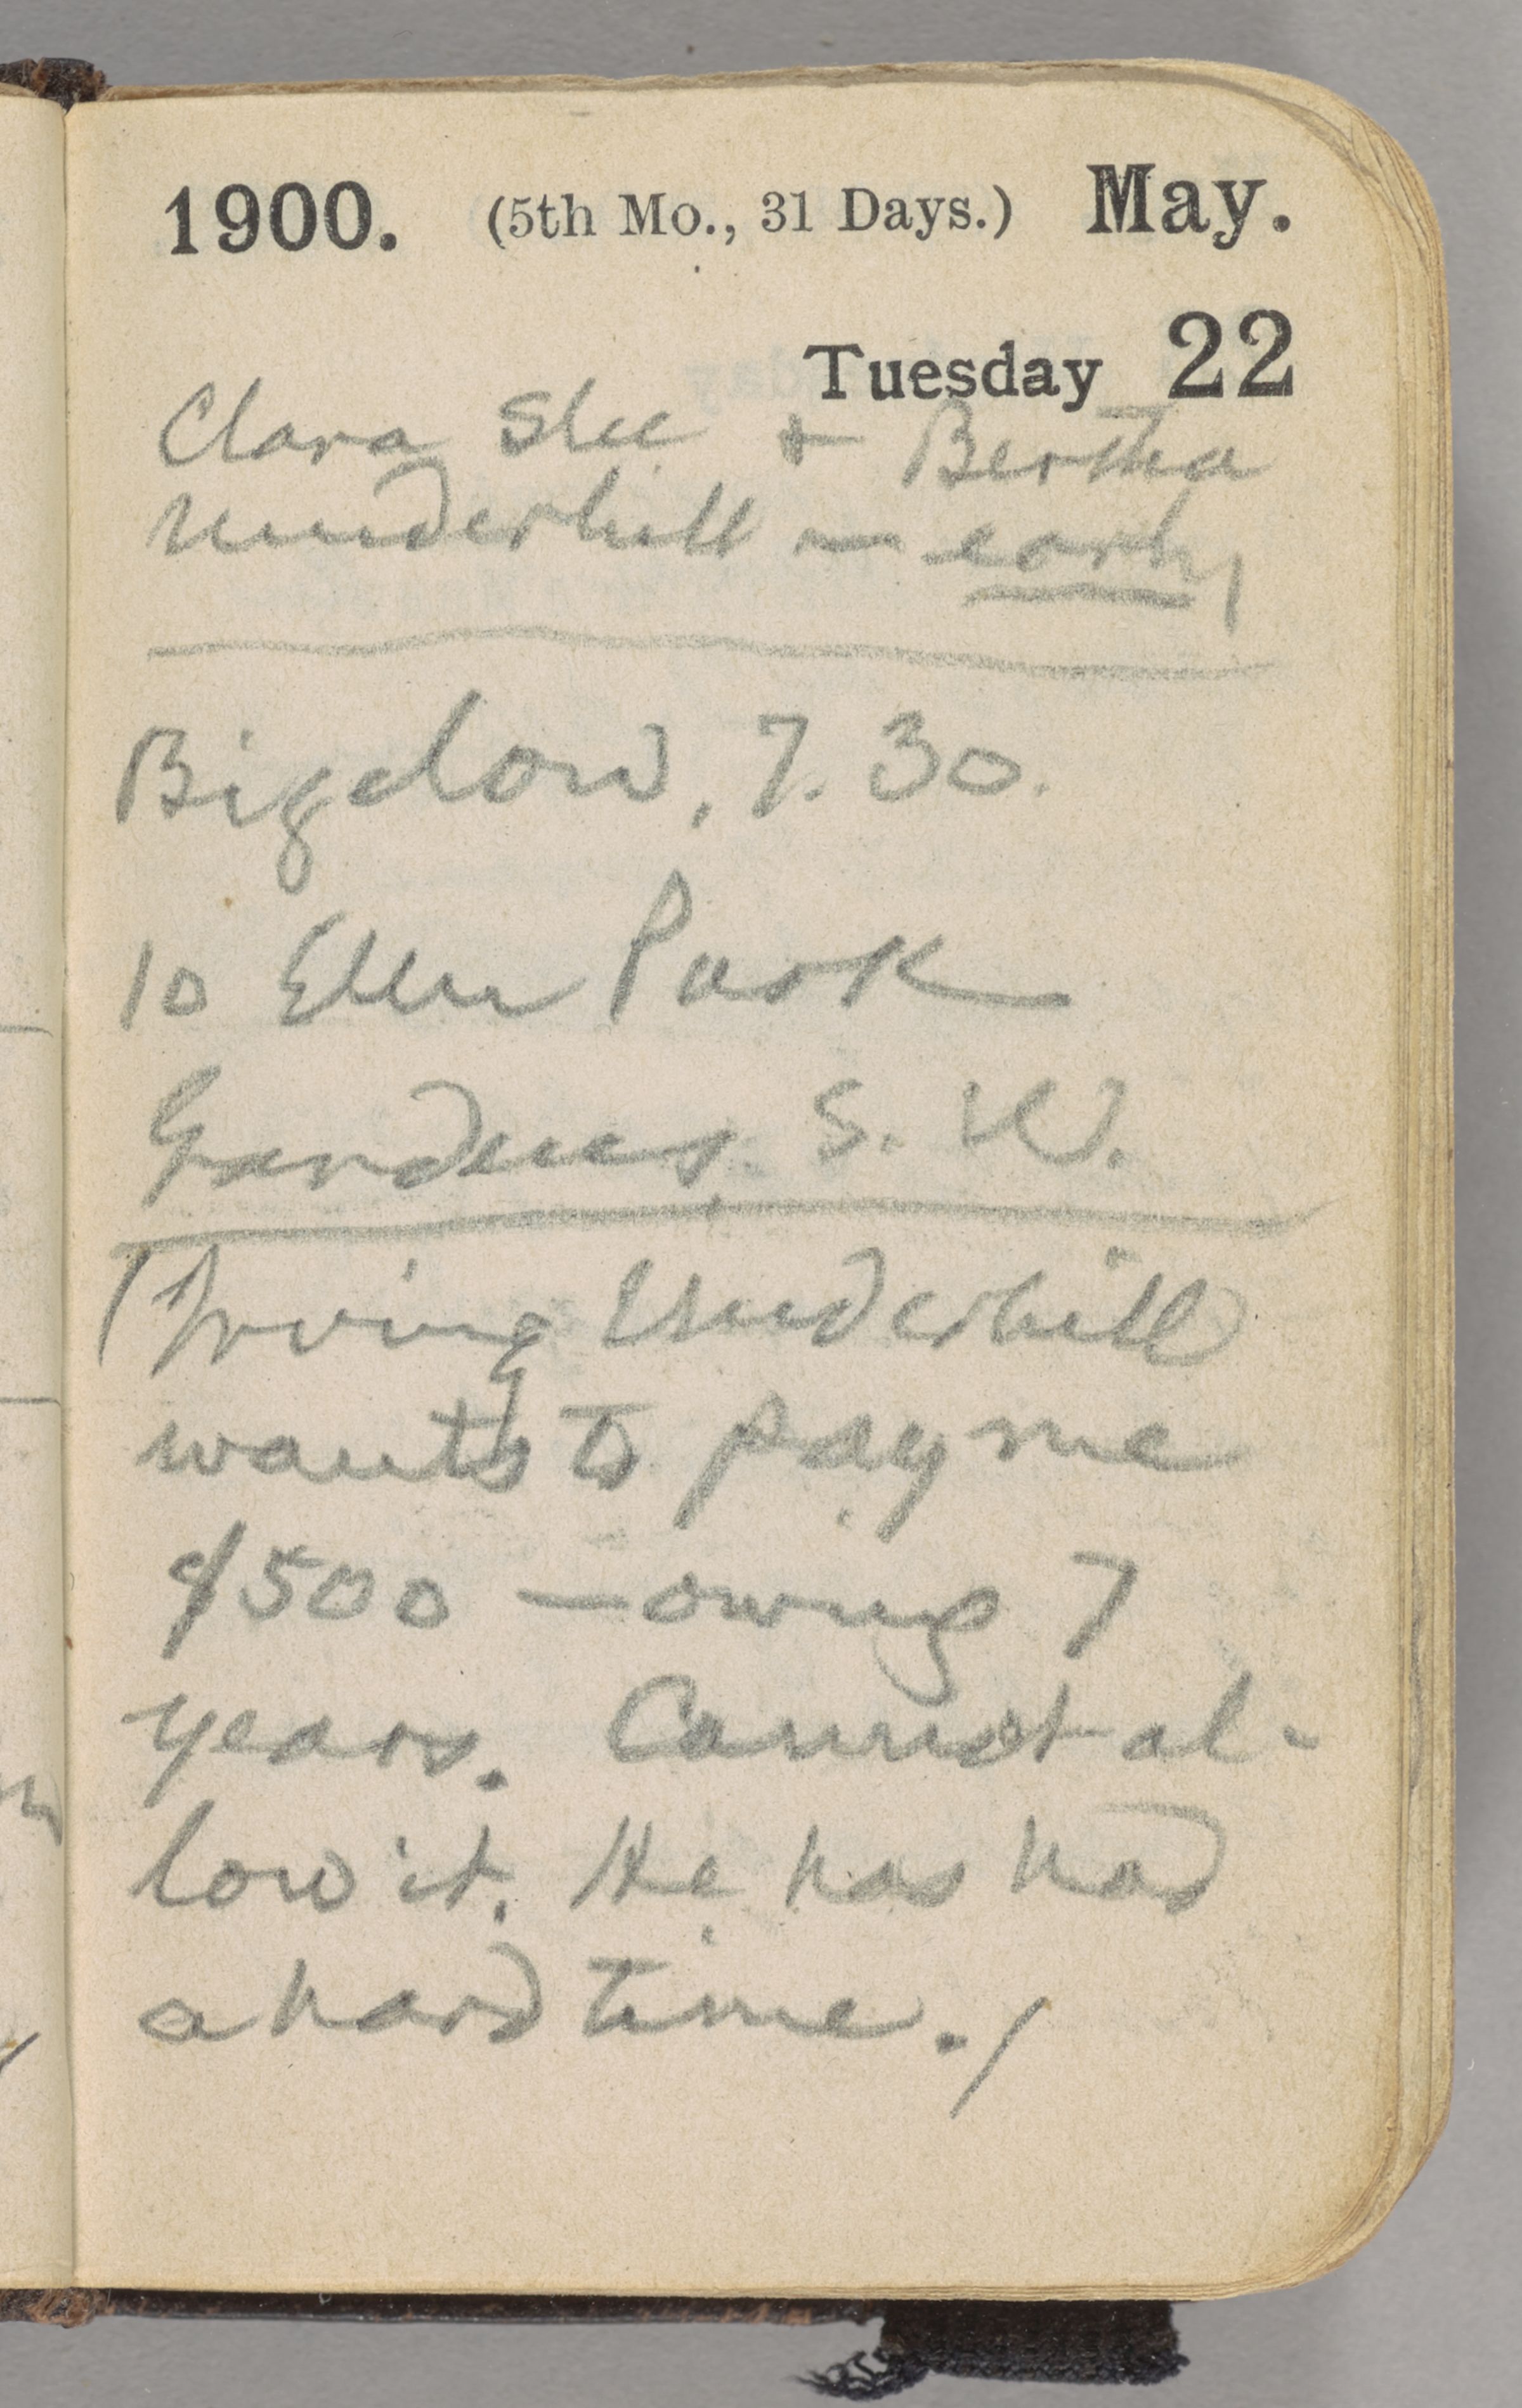 1900. (5th Mo., 31 Days.) May.
Tuesday 22
Clara Slee + Bertha
Underhill — early
Bigelow, 7.30.
10 Elm Park
Gardens, S. W.
(Irving Underhill
wants to pay me
$500 — owing 7
years. Cannot al-
low it. He has had
a hard time.)